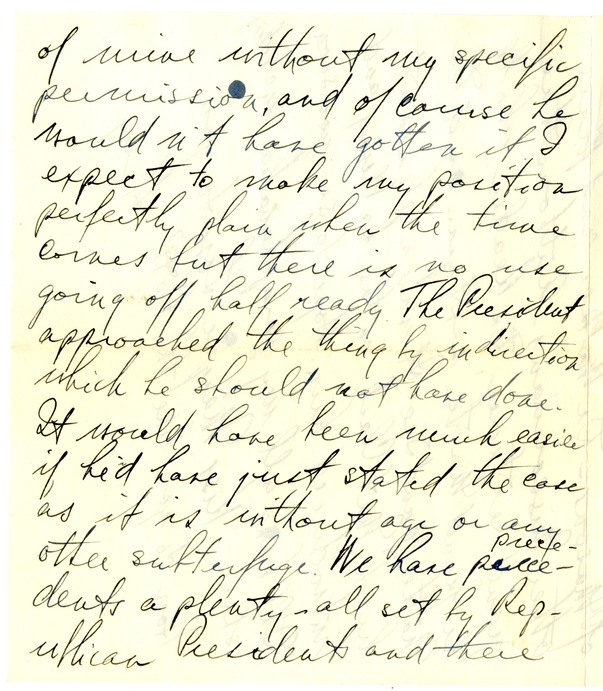 of mine without my specific
permission, and of course he
would n't have gotten it I
expect to make my position
perfectly plain when the time
comes but there is no use
going off half ready. The President
approached the thing by indirection
which he should not have done.
It would have been much easier
if he'd have just stated the case
as it is without age or any
other subterfuge. We have prece-
dents a plenty - all set by Rep-
ublican Presidents and there